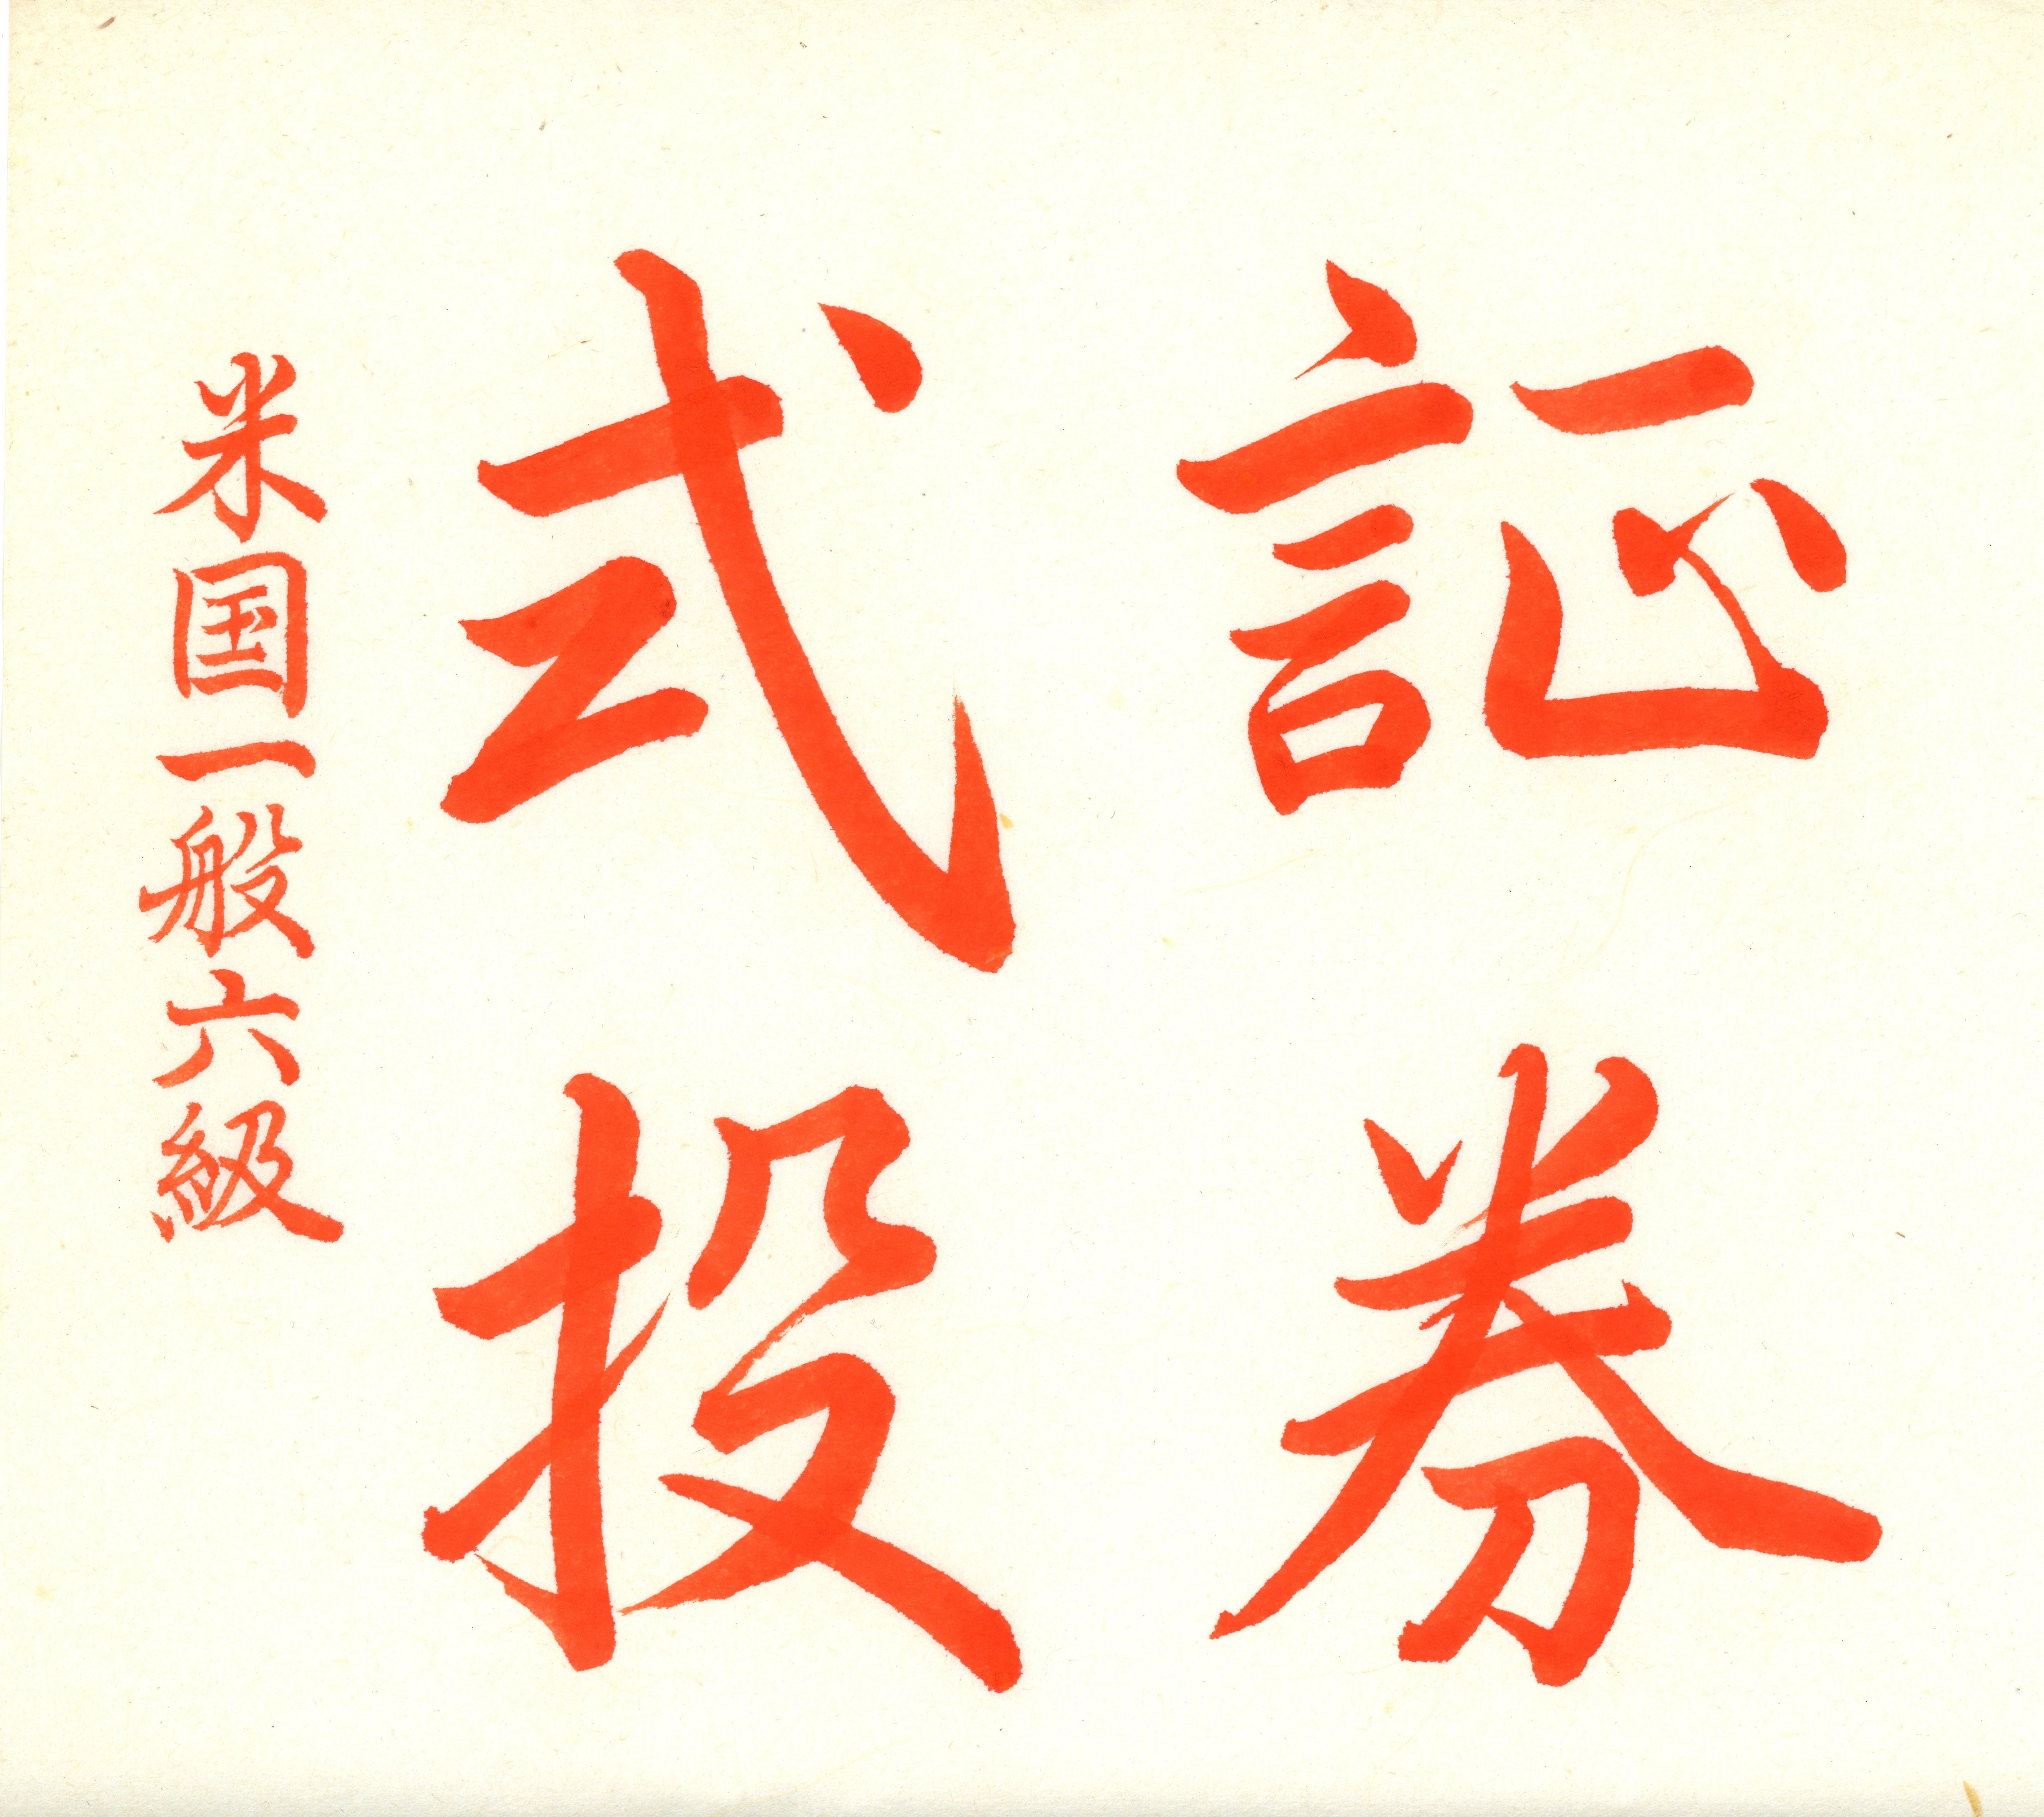 証券
式投
米国一般六級